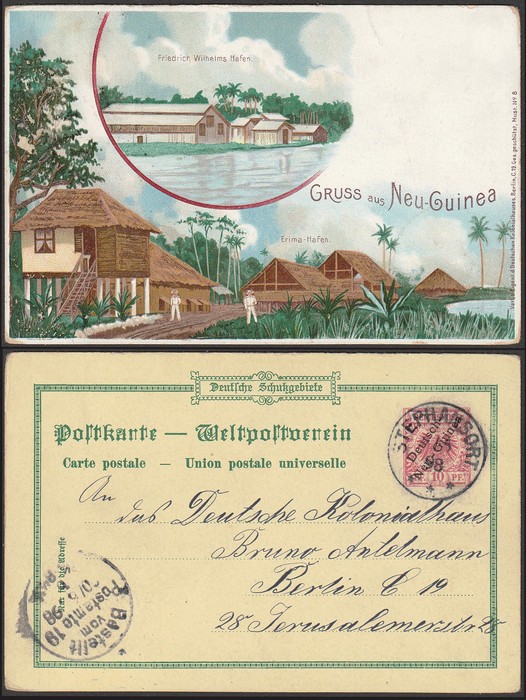 Friedrich Wilhelms Hafen.
GRUSS AUS NEU-GUINEA
Erima-Hafen.
Deutschen Kolonialhauses, Berlin, C. 19. Ges. geschützt, Must. Nº 8
Deutsche Schutzgebiete
Postkarte — Weltpostverein
Carte postale — Union postale universelle
STEPHANSORT
Deutsch-
Neu-Guinea
10 PF.
An
das Deutsche Kolonialhaus
Bruno Antelmann
Berlin C 19
28 Jerusalemerstr. 28
Nur für die Adresse
Bestellt
vom
Postamte 19
98